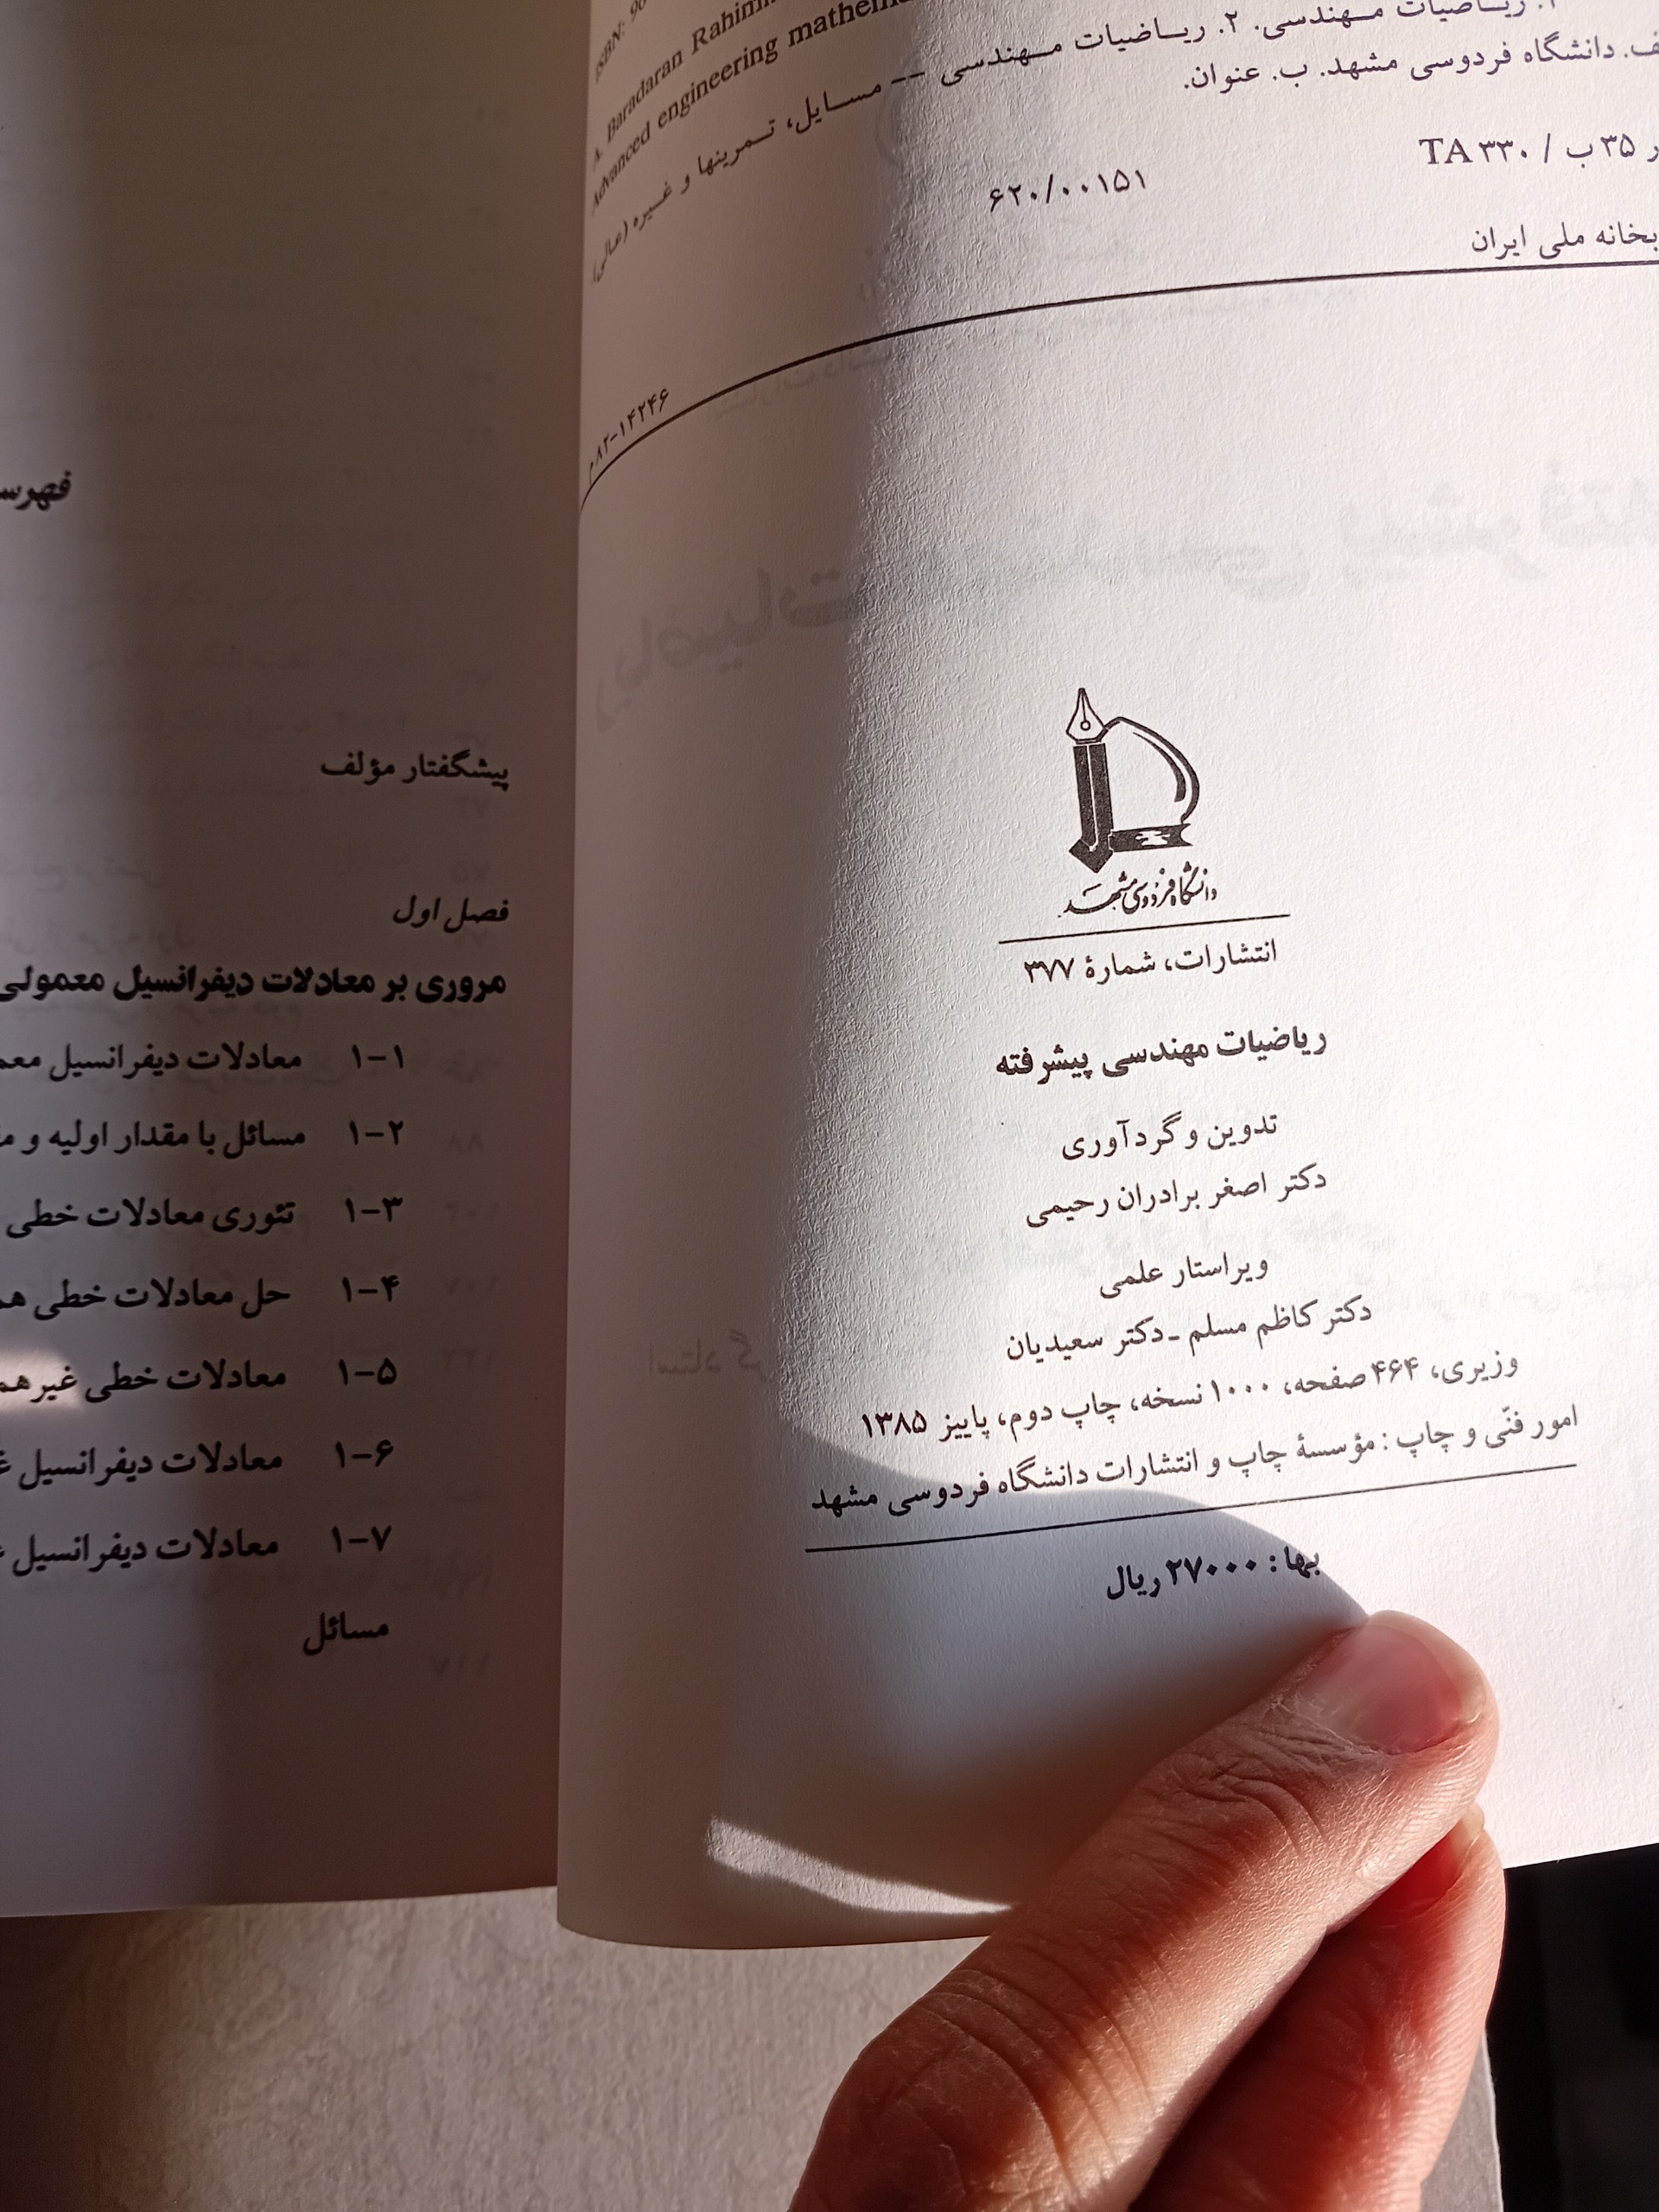 ISBN: 96
A. Baradaran Rahimi
Advanced engineering mathem
۱. ریاضیات مهندسی. ۲. ریاضیات مهندسی -- مسایل، تمرینها و غیره (عالی).
ف. دانشگاه فردوسی مشهد. ب. عنوان.
ر ۳۵ ب / TA ۳۳۰
۶۲۰/۰۰۱۵۱
بخانه ملی ایران
م۸۲-۱۴۲۴۶
دانشگاه فردوسی مشهد
انتشارات، شمارهٔ ۳۷۷
ریاضیات مهندسی پیشرفته
تدوین و گردآوری
دکتر اصغر برادران رحیمی
ویراستار علمی
دکتر کاظم مسلم ـ دکتر سعیدیان
وزیری، ۴۶۴ صفحه، ۱۰۰۰ نسخه، چاپ دوم، پاییز ۱۳۸۵
امور فنّی و چاپ : مؤسسهٔ چاپ و انتشارات دانشگاه فردوسی مشهد
بها : ۲۷۰۰۰ ریال
فهرس
پیشگفتار مؤلف
فصل اول
مروری بر معادلات دیفرانسیل معمولی
۱-۱ معادلات دیفرانسیل معم
۱-۲ مسائل با مقدار اولیه و م
۱-۳ تئوری معادلات خطی
۱-۴ حل معادلات خطی هم
۱-۵ معادلات خطی غیرهم
۱-۶ معادلات دیفرانسیل غ
۱-۷ معادلات دیفرانسیل
مسائل